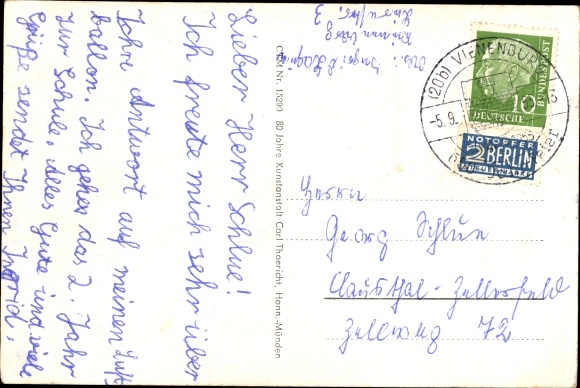 Lieber Herr Schlue!
Ich freute mich sehr über
Ihre Antwort auf meinen Luft-
ballon. Ich gehe das 2. Jahr
zur Schule. Alles Gute und viele
Grüße sendet Ihnen Ingrid.
Abs.: Ingrid
CTM Nr. 15299 80 Jahre Kunstanstalt Carl Thoericht, Hann.-Münden
(20b) VIENENBURG
-5.9.
10
DEUTSCHE
BUNDESPOST
NOTOPFER
2 BERLIN
STEUERMARKE
Herrn
Georg Schlue
Clausthal-Zellerfeld
Zellweg 72